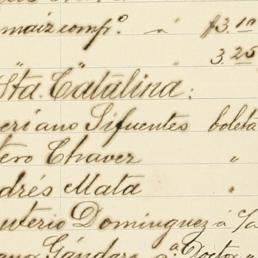 maiz comp.º " a $3.10
3.25
"Sta. Catalina:
eriano Sifuentes boleta
tero Chavez "
drés Mata "
uterio Dominguez á c/
Gándara á. Doctor